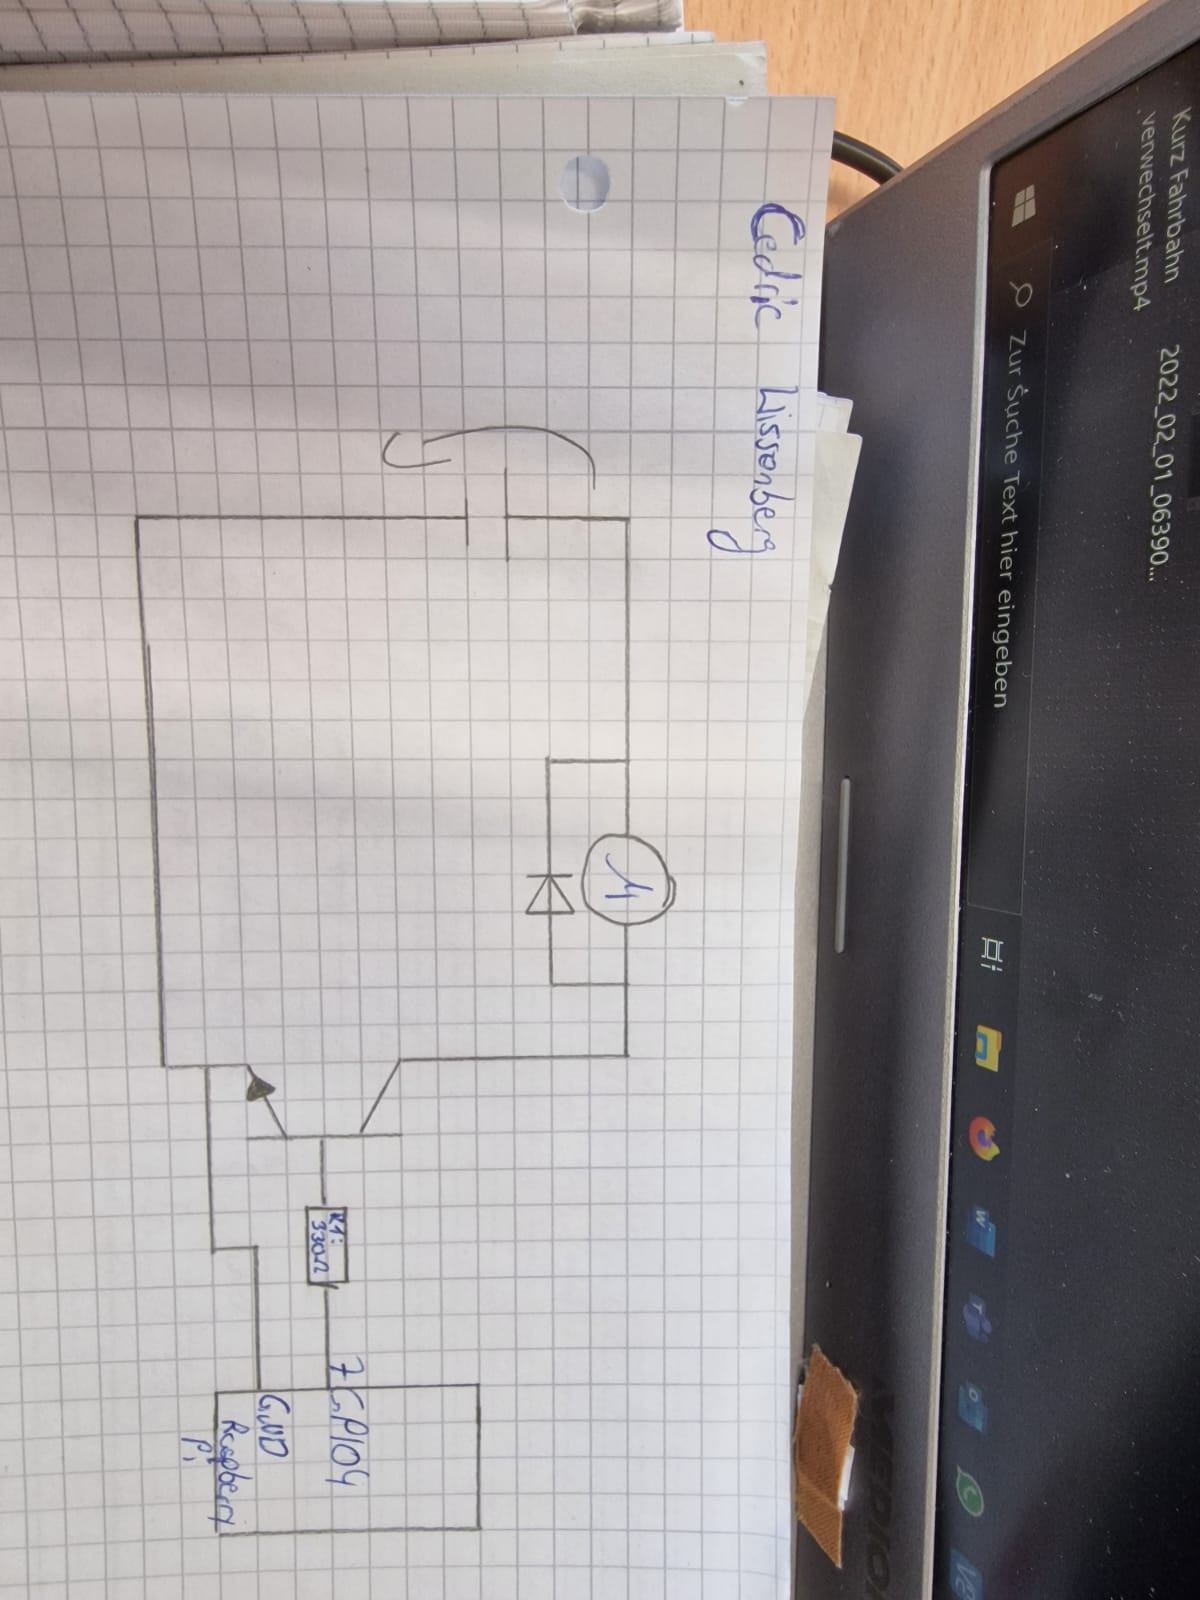 Kurz Fahrbahn
verwechselt.mp4
2022_02_01_06390...
Zur Suche Text hier eingeben
MEDION
Cedric Wissenberg
M
R1:
330Ω
7 GPIO4
GND
Raspberry
Pi